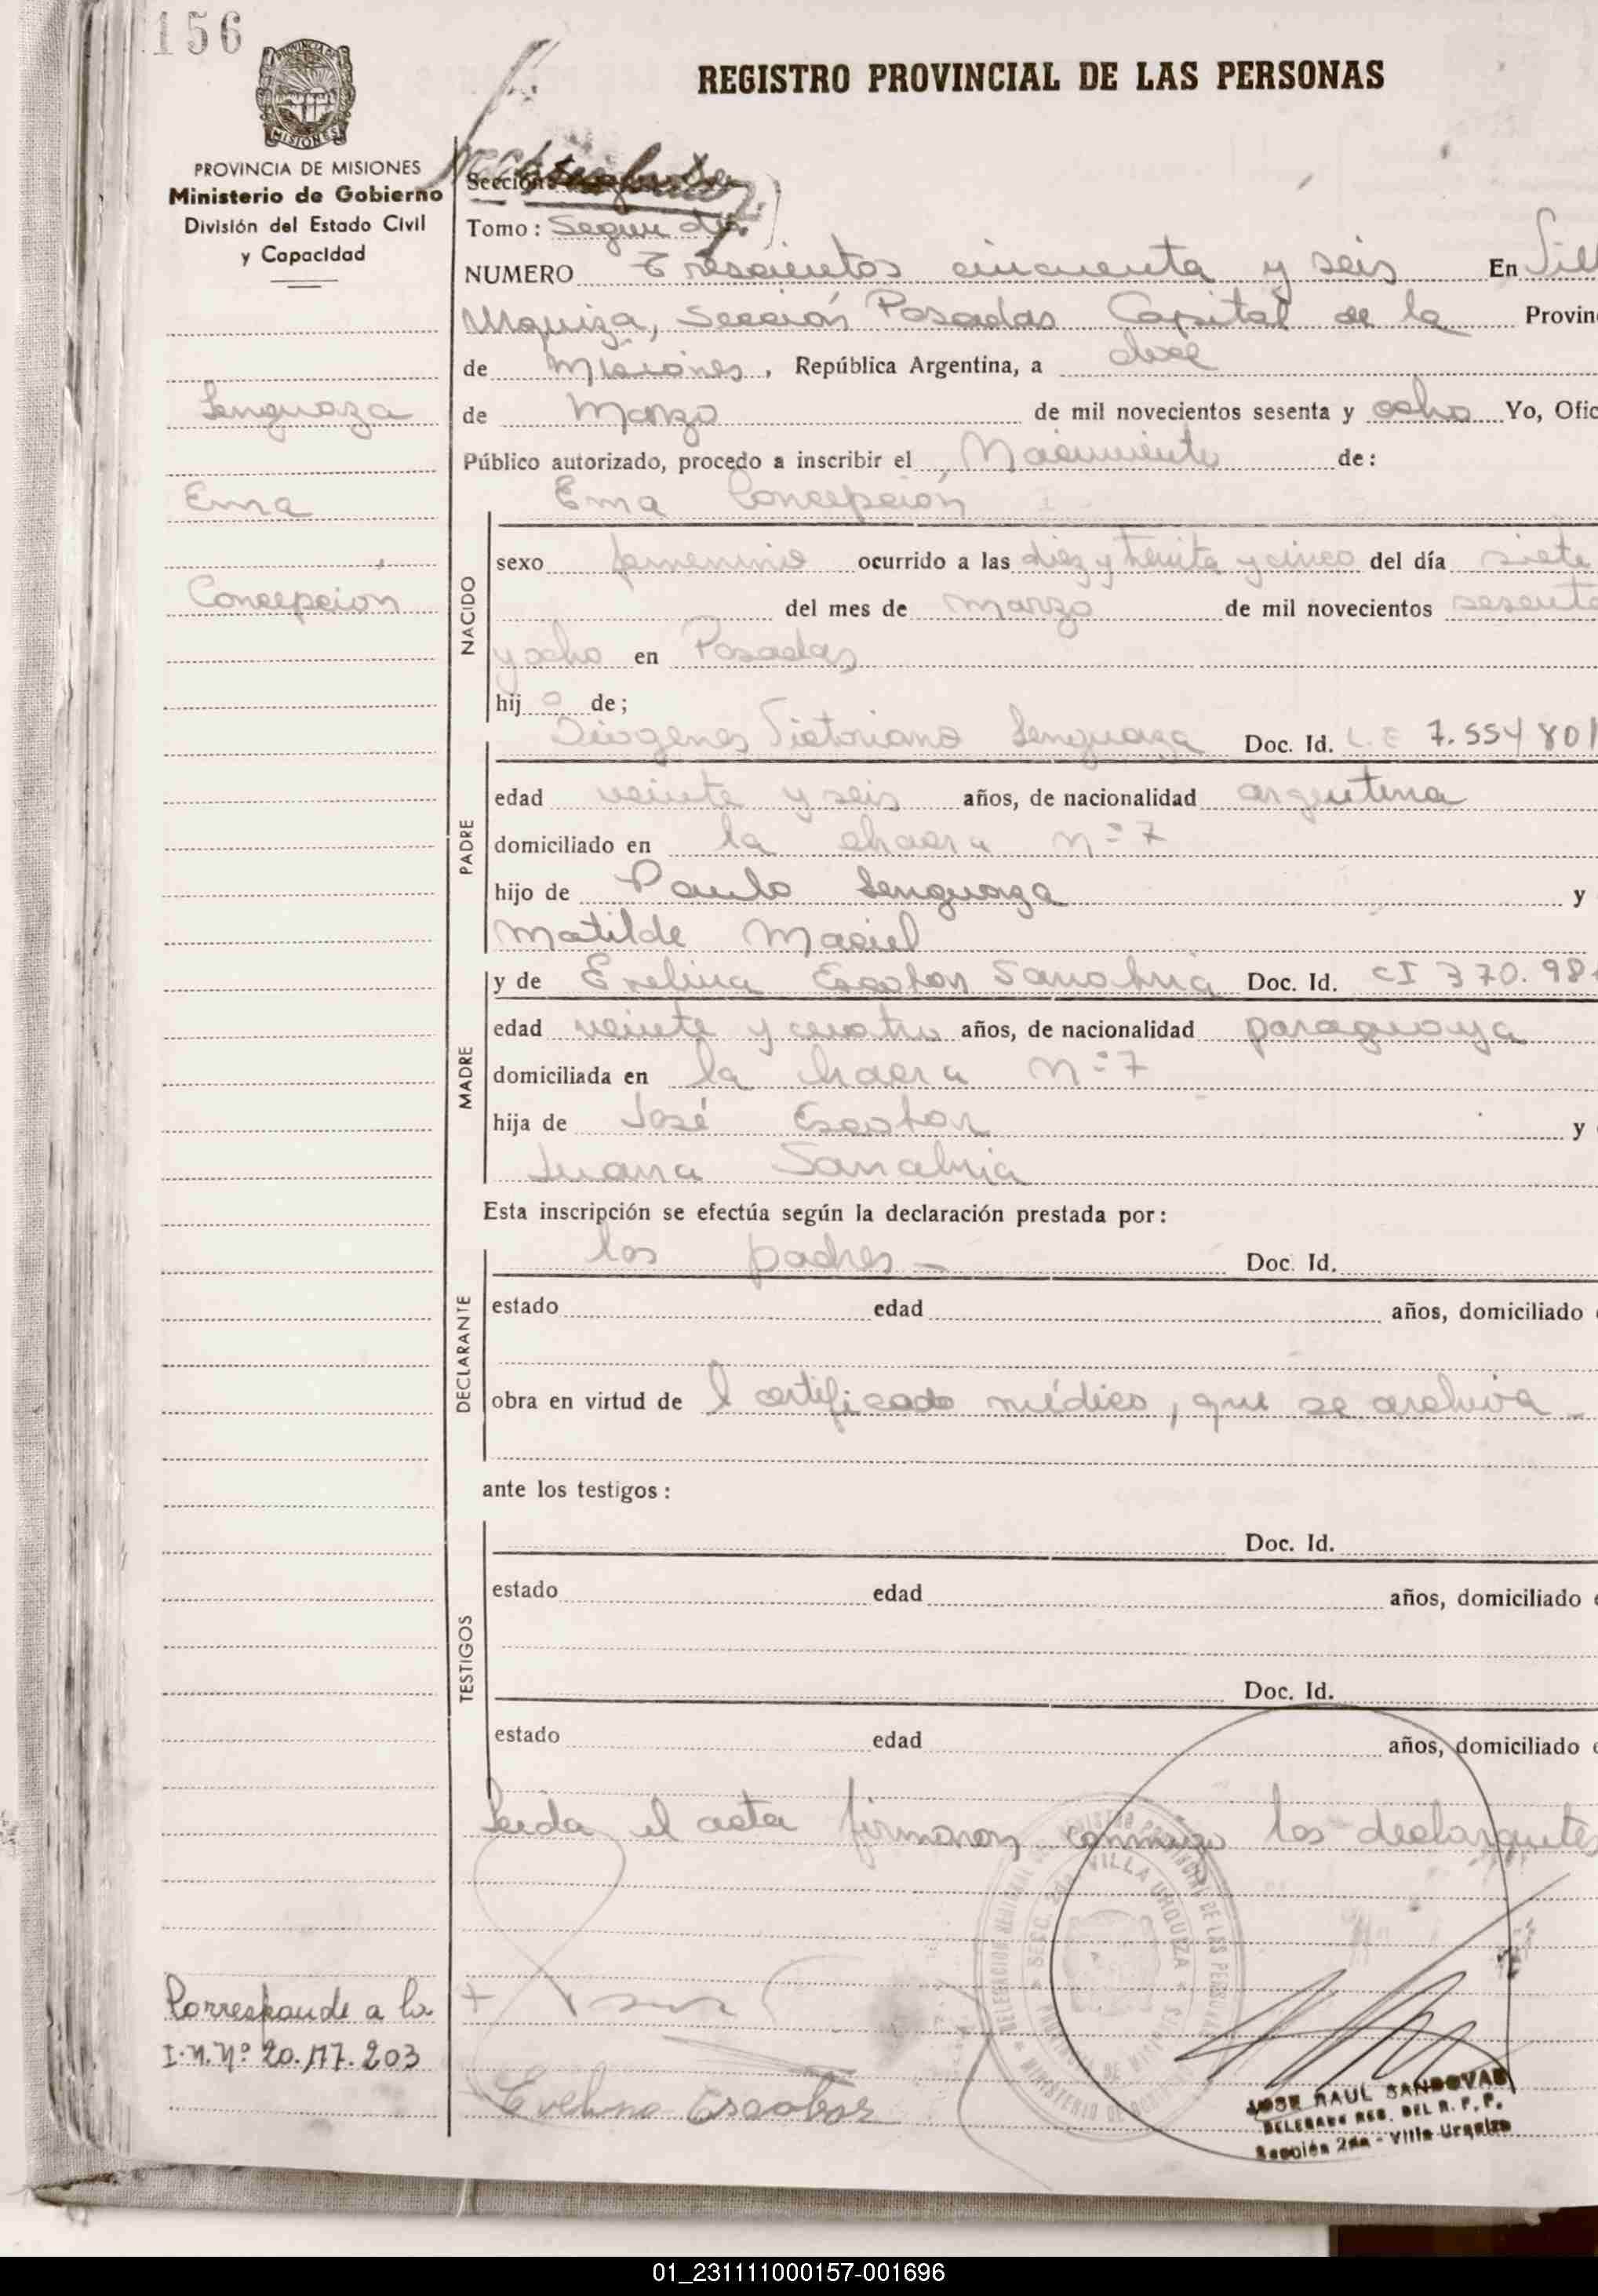 156
PROVINCIA DE MISIONES
Ministerio de Gobierno
División del Estado Civil
y Capacidad
REGISTRO PROVINCIAL DE LAS PERSONAS
Sección:
Tomo: Segundo
NUMERO Trescientos cincuenta y seis En Vill
Urquiza, Sección Posadas Capital de la Provin
de Misiones, República Argentina, a doce
Lenguaza
de Marzo de mil novecientos sesenta y ocho Yo, Ofic
Público autorizado, procedo a inscribir el Nacimiento de:
Ema
Ema Concepción
NACIDO
sexo femenino ocurrido a las diez y treinta y cinco del día siete
Concepcion
del mes de marzo de mil novecientos sesenta
y ocho en Posadas
hij a de;
PADRE
Diogenes Victoriano Lenguaza Doc. Id. L.E 7.554 801
edad veinte y seis años, de nacionalidad argentina
domiciliado en la chacra n° 7
hijo de Paulo Lenguaza y
Matilde Maciel
MADRE
y de Evelina Escobar Sanabria Doc. Id. CI 370.98
edad veinte y cuatro años, de nacionalidad paraguaya
domiciliada en la chacra n° 7
hija de José Escobar y
Juana Sanabria
Esta inscripción se efectúa según la declaración prestada por:
DECLARANTE
los padres - Doc. Id.
estado edad años, domiciliado
obra en virtud de l certificado médico, que se archiva -
ante los testigos:
TESTIGOS
Doc. Id.
estado edad años, domiciliado
Doc. Id.
estado edad años, domiciliado
Leida el acta firmaron conmigo los declarantes
VILLA URQUIZA
Corresponde a la
I.N.N° 20.177.203
Evelina Escobar
JOSE RAUL SANDOVAL
DELEGADO REG. DEL R. P. P.
Sección 2da - Villa Urquiza
01_231111000157-001696